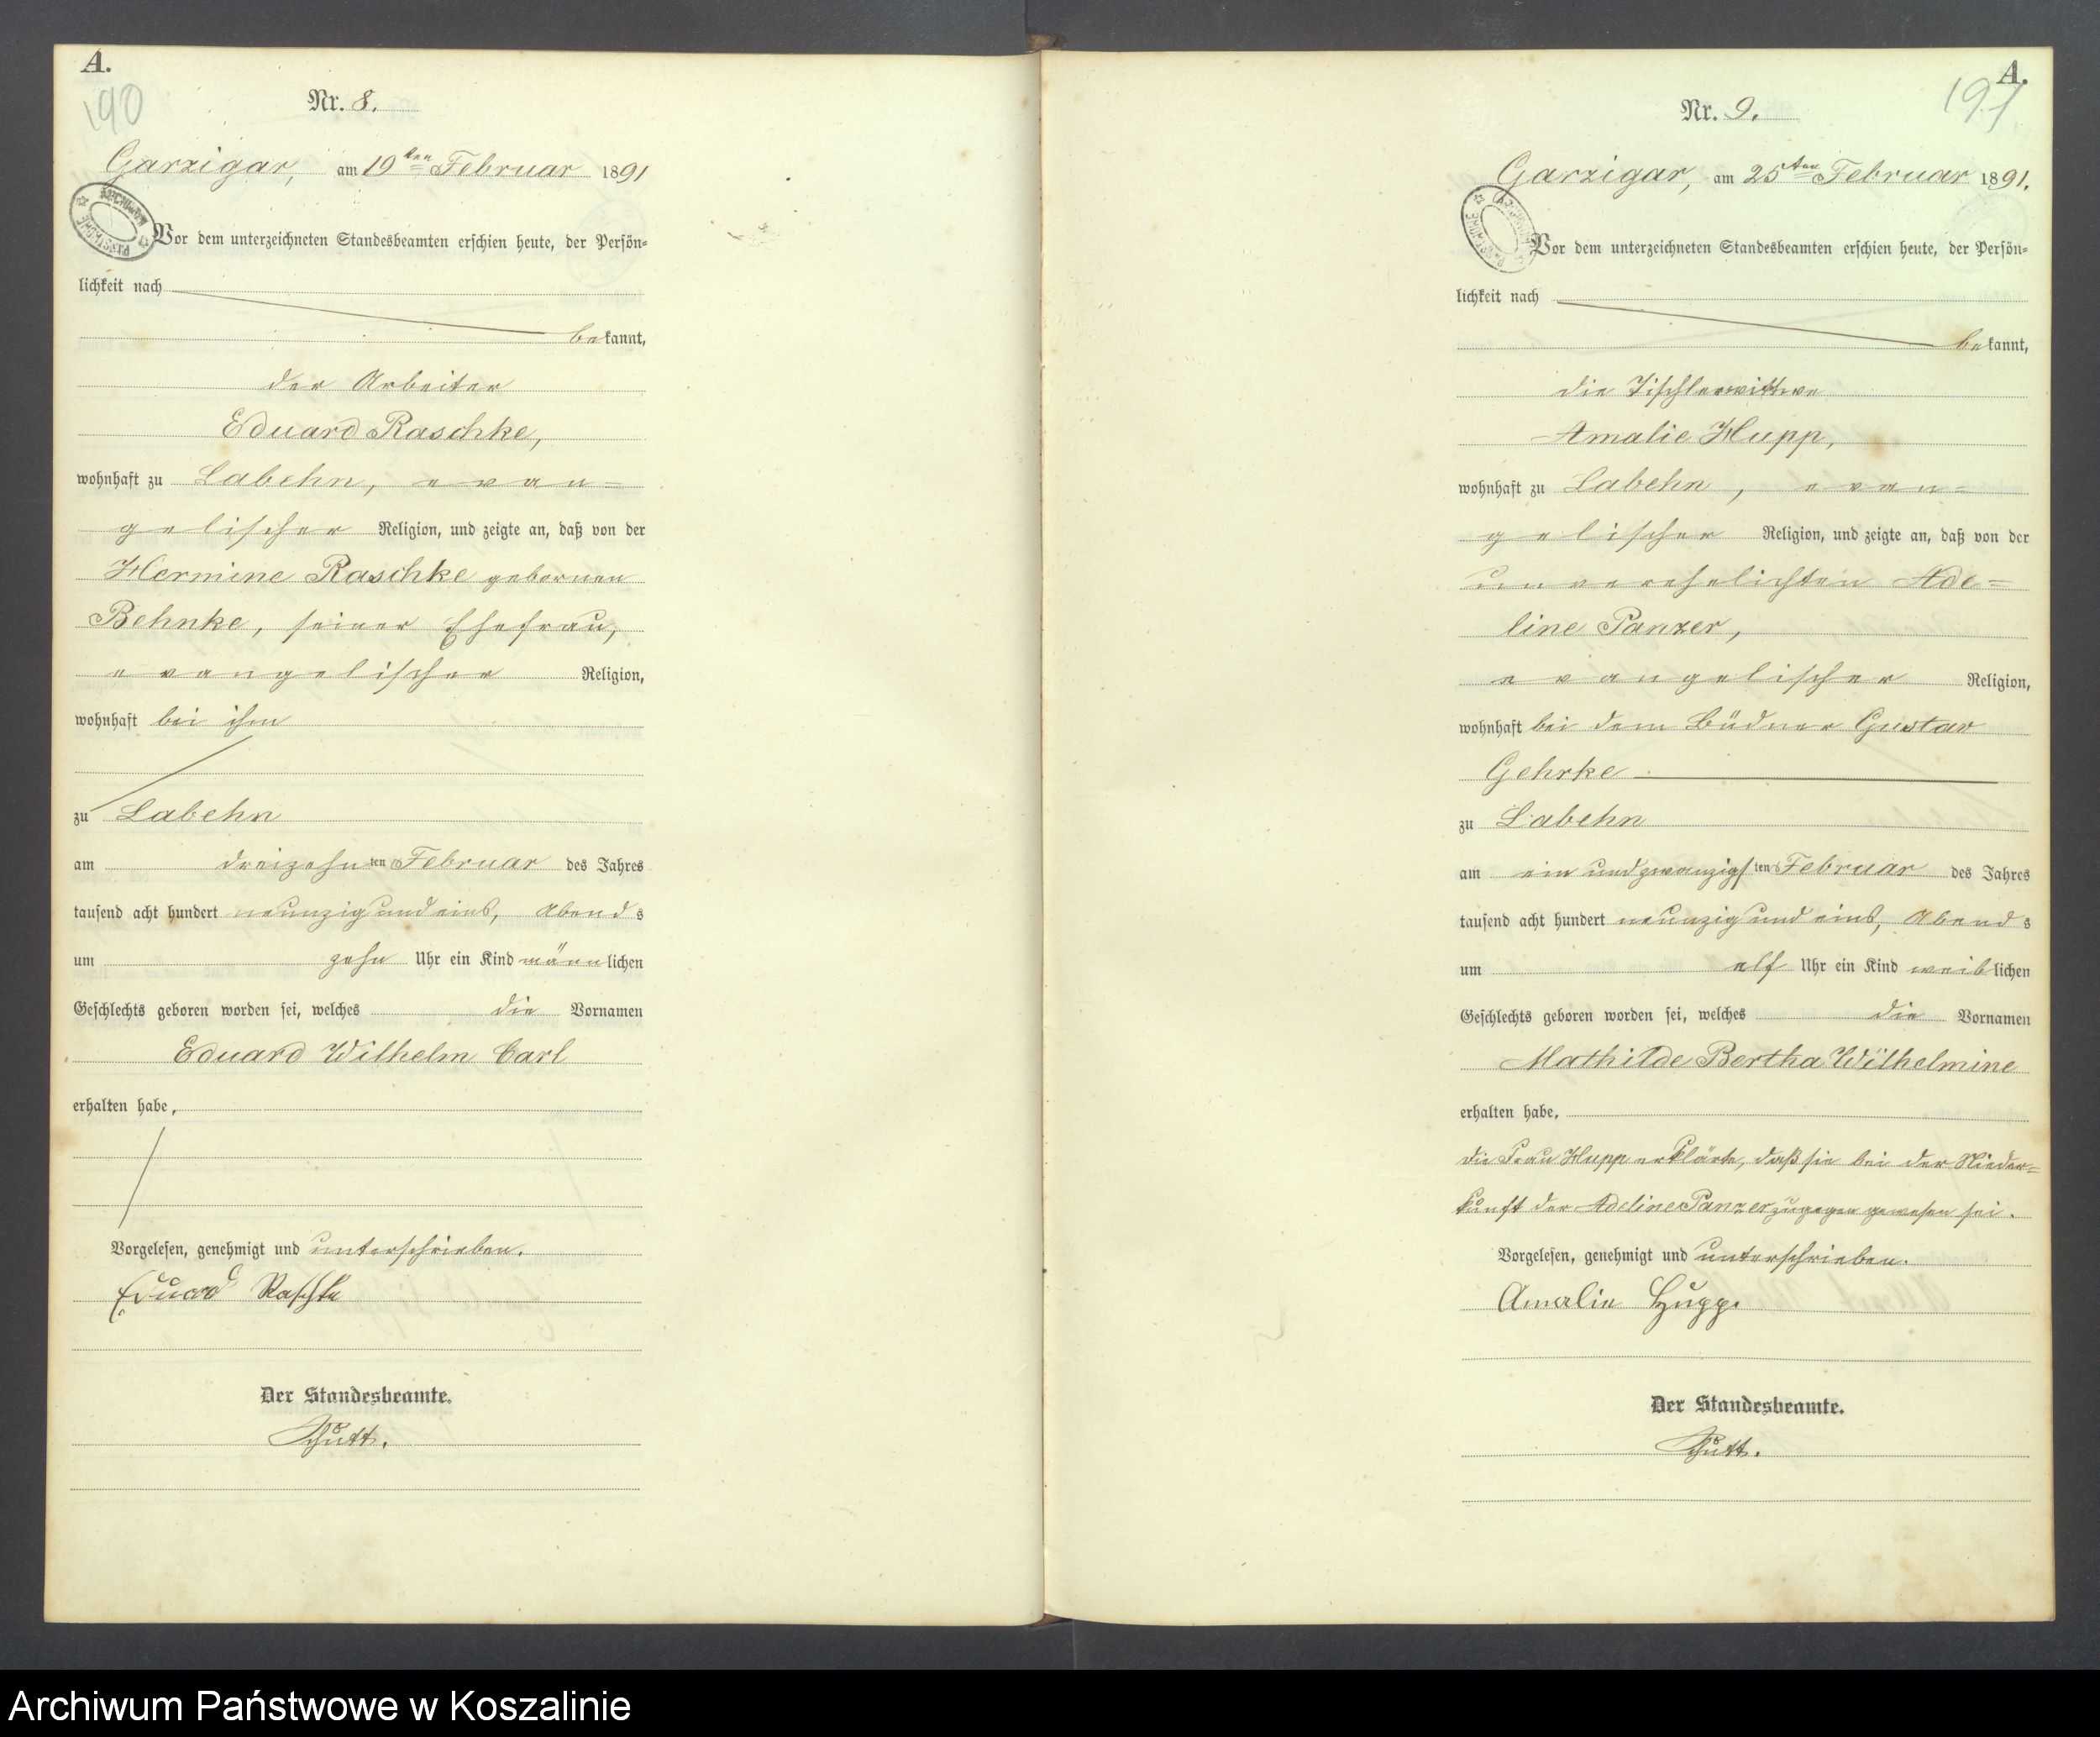 A.
190
Nr. 8.
Garzigar, am 19ten Februar 1891
Vor dem unterzeichneten Standesbeamten erschien heute, der Persön-
lichkeit nach
bekannt,
der Arbeiter
Eduard Raschke,
wohnhaft zu Labehn, evan-
gelischer Religion, und zeigte an, daß von der
Hermine Raschke gebornen
Behnke, seiner Ehefrau,
evangelischer Religion,
wohnhaft bei ihm
zu Labehn
am dreizehnten Februar des Jahres
tausend acht hundert neunzig und eins, Abends
um zehn Uhr ein Kind männlichen
Geschlechts geboren worden sei, welches die Vornamen
Eduard Wilhelm Carl
erhalten habe,
Vorgelesen, genehmigt und unterschrieben.
Eduard Raschke
Der Standesbeamte.
Schütt.
A.
191
Nr. 9.
Garzigar, am 25ten Februar 1891.
Vor dem unterzeichneten Standesbeamten erschien heute, der Persön-
lichkeit nach
bekannt,
die Tischlerwittwe
Amalie Hupp,
wohnhaft zu Labehn, evan-
gelischer Religion, und zeigte an, daß von der
unverehelichten Ade-
line Panzer,
evangelischer Religion,
wohnhaft bei dem Büdner Gustav
Gehrke
zu Labehn
am ein und zwanzigsten Februar des Jahres
tausend acht hundert neunzig und eins, Abends
um elf Uhr ein Kind weiblichen
Geschlechts geboren worden sei, welches die Vornamen
Mathilde Bertha Wilhelmine
erhalten habe.
Die Frau Hupp erklärte, daß sie bei der Nieder-
kunft der Adeline Panzer zugegen gewesen sei.
Vorgelesen, genehmigt und unterschrieben.
Amalie Hupp.
Der Standesbeamte.
Schütt.
Archiwum Państwowe w Koszalinie